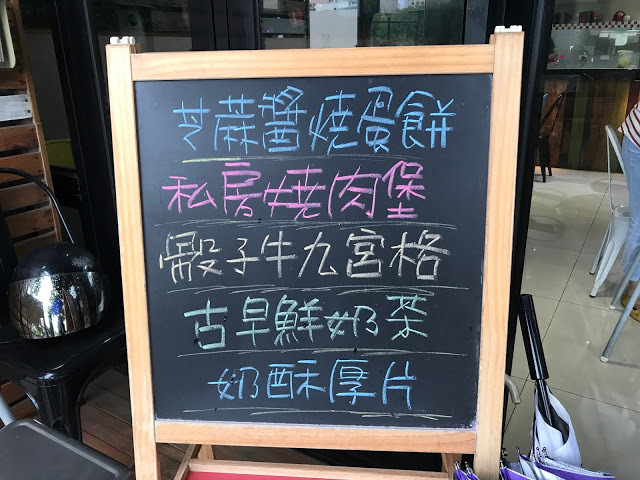 芝蔴醬燒蛋餅
私房燒肉堡
骰子牛九宮格
古早鮮奶茶
奶酥厚片